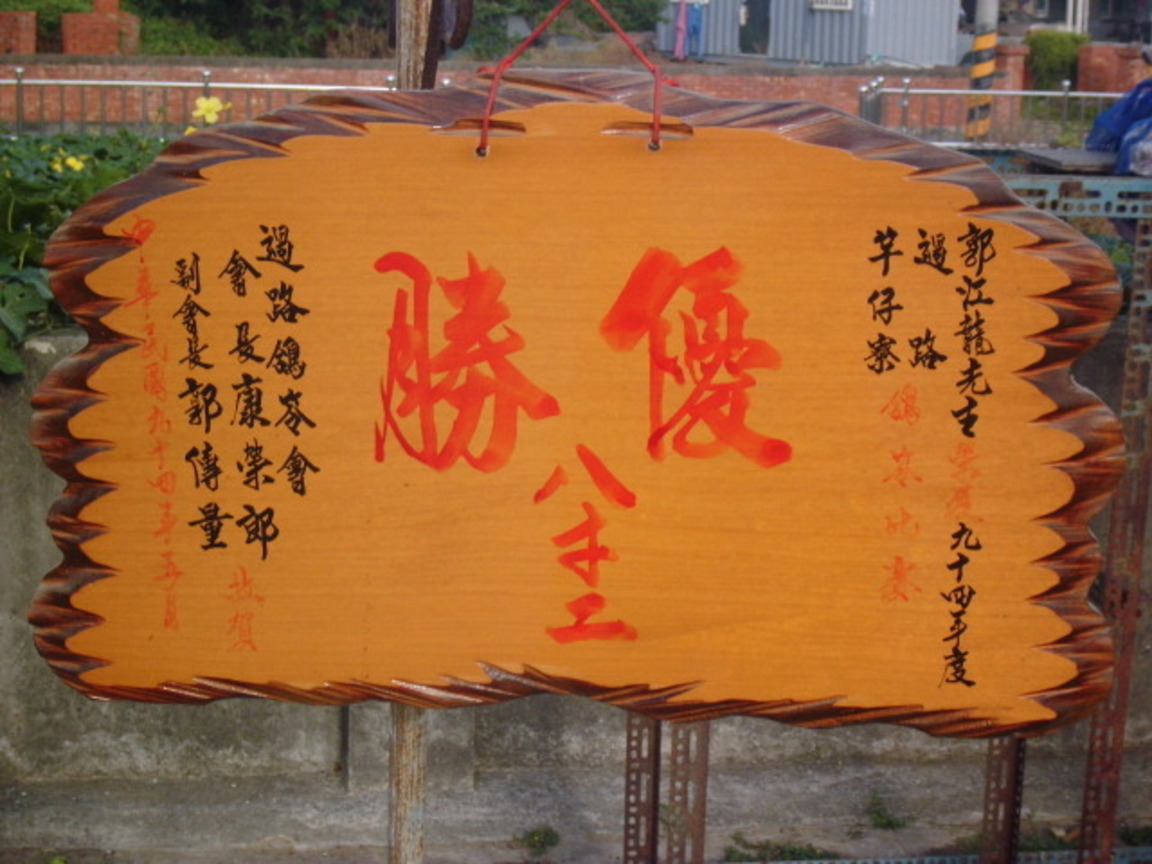 郭江龍先生榮獲九十四年度
過路
芊仔寮鴿笭比賽
優勝
八才工
過路鴿笭會
會長康榮郎
副會長郭傳量
敬賀
中華民國九十四年五月